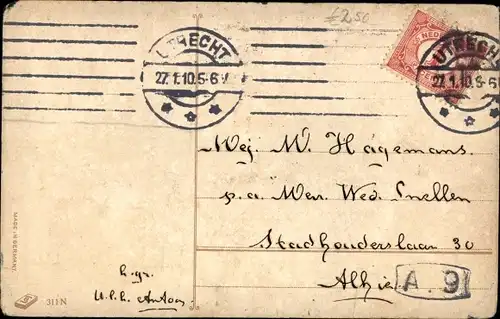 £2,50
UTRECHT
27.1.10.5-6V
UTRECHT
27.1.10.5-6
NED
Mej. W. Hagemans.
p.a. Mevr. Wed. Snellen
Stadhouderslaan 30
Alhier
A. 9
h.gr.
u.l.l. Antoon
MADE IN GERMANY
311N